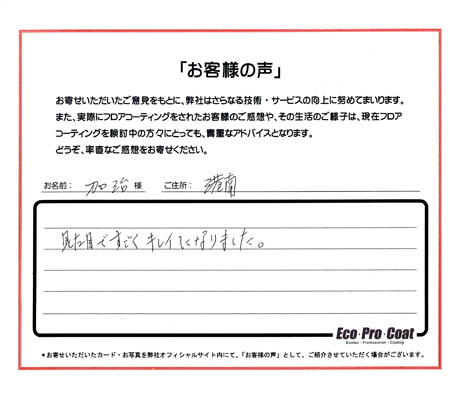 「お客様の声」
お寄せいただいたご意見をもとに、弊社はさらなる技術・サービスの向上に努めてまいります。
また、実際にフロアコーティングをされたお客様のご感想や、その生活のご様子は、現在フロア
コーティングを検討中の方々にとっても、貴重なアドバイスとなります。
どうぞ、率直なご感想をお寄せください。
お名前： 加治 様 ご住所： 港南
見た目ですごくキレイになりました。
Eco・Pro・Coat
Ecolee・Professional・Coating
＊お寄せいただいたカード・お写真を弊社オフィシャルサイト内にて、「お客様の声」として、ご紹介させていただく場合がございます。